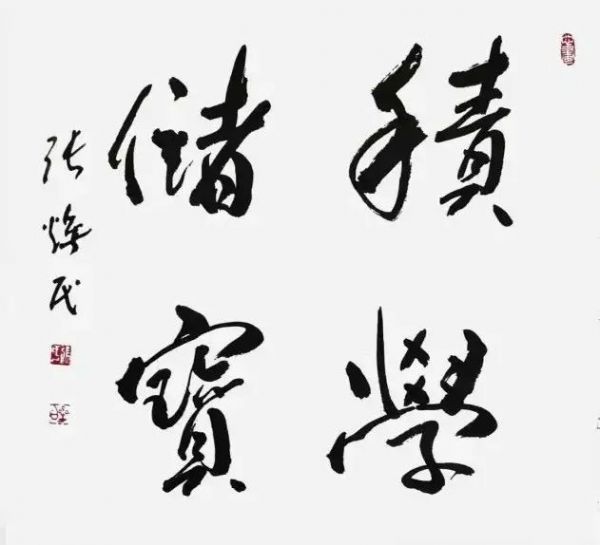 積學
儲寶
張煥民